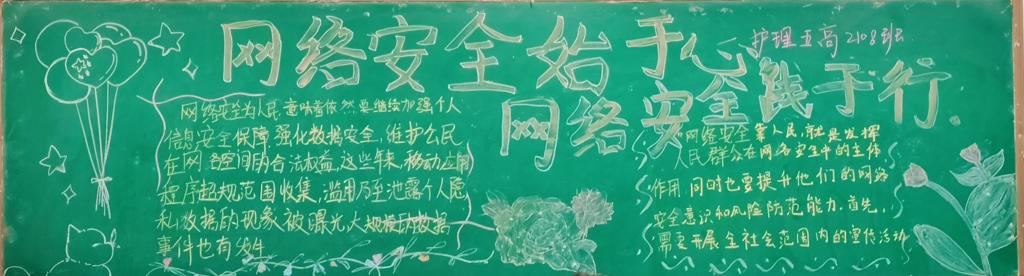 网络安全始于心
网络安全践于行
护理五高2108班
网络安全为人民,意味着依然要继续加强个人
信息安全保障,强化数据安全,维护公民
在网络空间的合法权益,这些年来,移动应用
程序超规范围收集,滥用乃至泄露个人隐
私数据的现象被曝光,大规模的数据
事件也有发生
网络安全靠人民,就是发挥
人民群众在网络安全中的主体
作用,同时也要提升他们的网络
安全意识和风险防范能力.首先,
需要开展全社会范围内的宣传活动